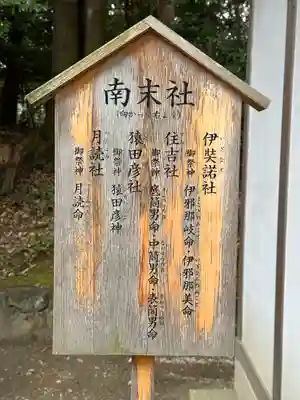 南末社
（向かって右より）
伊奘諾社
御祭神 伊邪那岐命・伊邪那美命
住吉社
御祭神 底筒男命・中筒男命・表筒男命
猿田彦社
御祭神 猿田彦神
月読社
御祭神 月読命